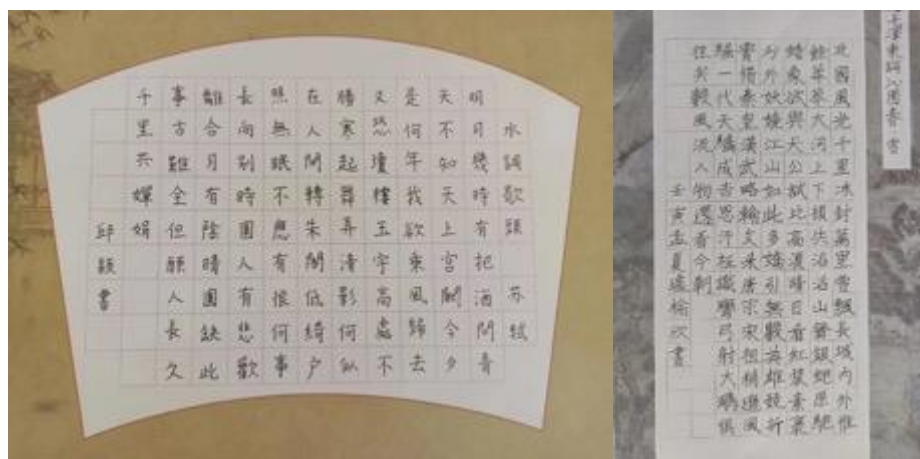 水調歌頭 苏軾
明月幾時有把酒問青
天不知天上宮闕今夕
是何年我欲乘風歸去
又恐瓊樓玉宇高處不
勝寒起舞弄清影何似
在人間轉朱閣低綺户
照無眠不應有恨何事
長向别時圓人有悲歡
離合月有陰晴圓缺此
事古難全但願人長久
千里共嬋娟
邱颖書
澤東詞沁園春 雪
北國風光千里冰封萬里雪飄長城内外惟
餘莽莽大河上下頓失滔滔山舞銀蛇原馳
蠟象欲與天公試比高須晴日看紅裝素裹
分外妖嬈江山如此多嬌引無數英雄競折
腰惜秦皇漢武略輸文采唐宗宋祖稍遜風
騷一代天驕成吉思汗祗識彎弓射大鵰俱
往矣數風流人物還看今朝
壬寅孟夏書